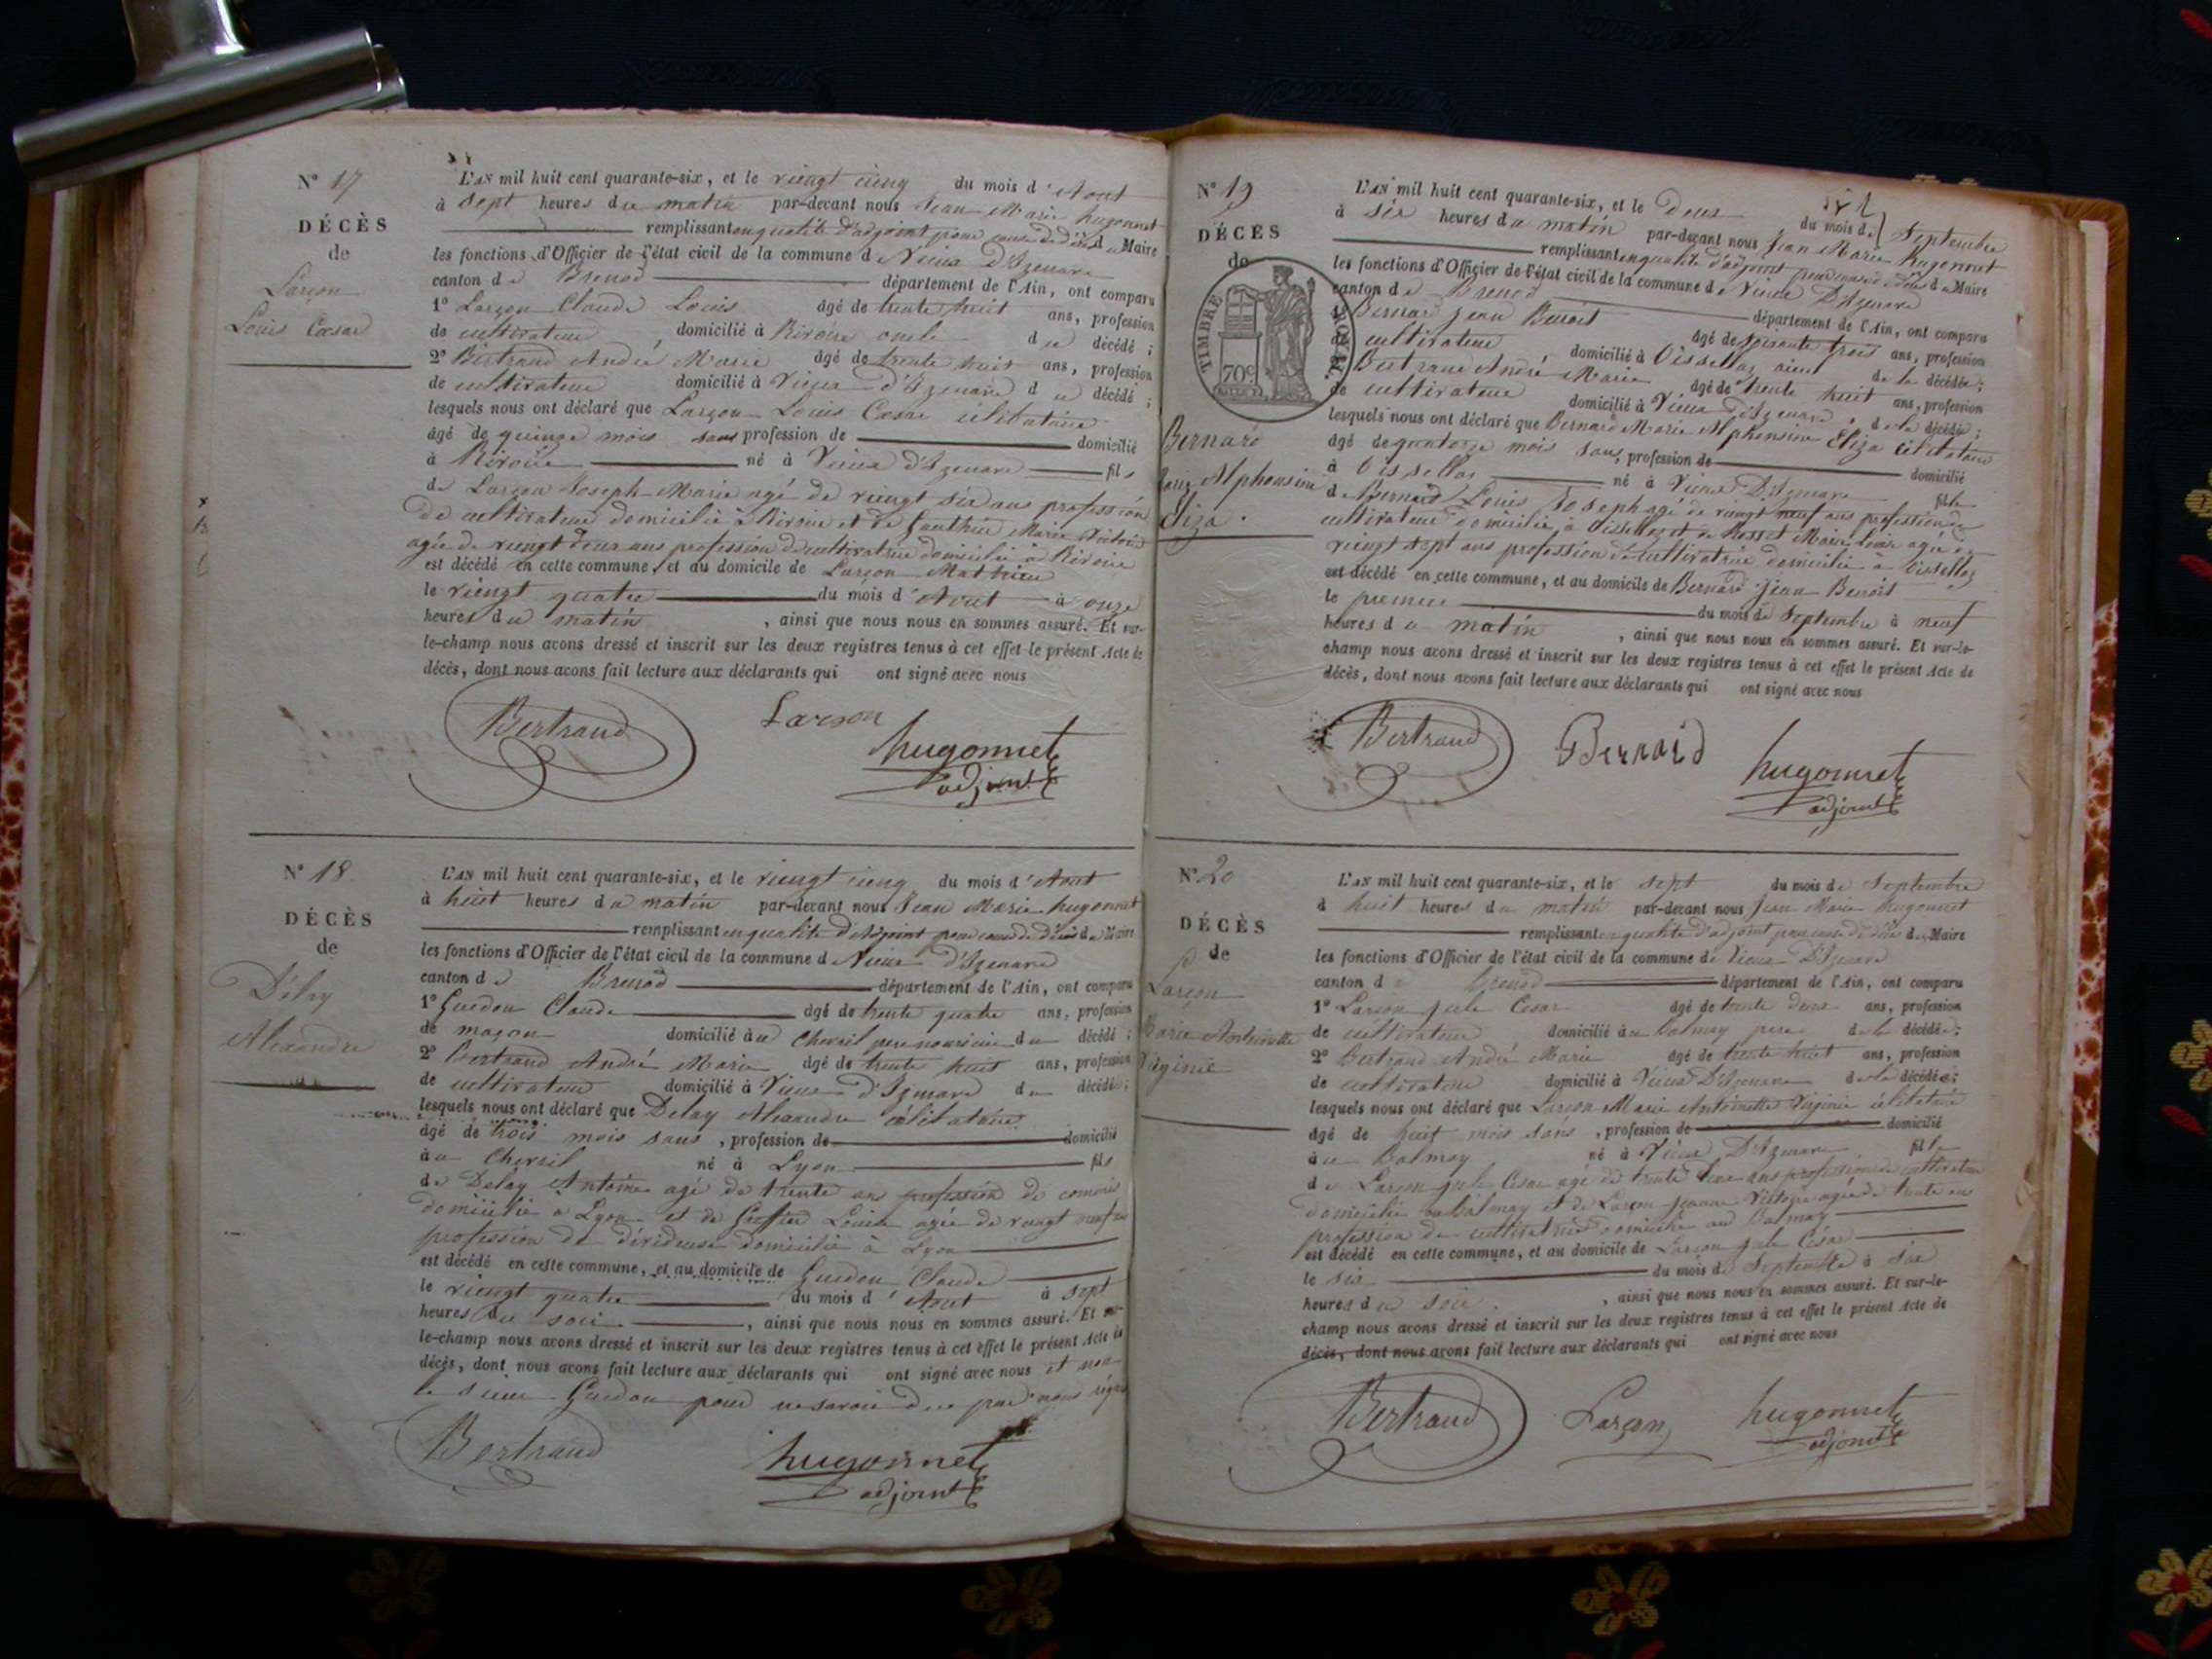 N° 17
DÉCÈS
de
Larçon
Louis Cæsar
L'AN mil huit cent quarante-six, et le viengt cienq du mois d'Aout
à sept heures du matin par-devant nous Jean Marie hugonnet
remplissant en qualité d'adjoint pour cause de décès du Maire
les fonctions d'Officier de l'état civil de la commune d Vieux d'Izenave
canton de Brenod département de l'Ain, ont comparu
1° Larçon Claude Louis âgé de trente huit ans, profession
de cultivateur, domicilié à Rivoire oncle du décédé;
2° Bertrand André Marie âgé de trente huit ans, profession
de cultivateur domicilié à Vieux d'Izenave d u décédé;
lesquels nous ont déclaré que Larçon Louis Cæsar célibataire
âgé de quinze mois sans profession de domicilié
à Rivoire né à Vieux d'Izenave fils
de Larçon Joseph Marie agé de viengt six ans profession
de cultivateur domicilié à Rivoire et de Gauthier Marie
agée de viengt deux ans profession de cultivatrice domicilié à Rivoire
est décédé en cette commune, et au domicile de Larçon Mathieu
le viengt quatre du mois d'Aout à onze
heures du matin, ainsi que nous nous en sommes assuré. Et sur-
le-champ nous avons dressé et inscrit sur les deux registres tenus à cet effet le présent Acte de
décès, dont nous avons fait lecture aux déclarants qui ont signé avec nous
Bertrand Larçon hugonnet
adjoint
N° 18
DÉCÈS
de
Délay
Alexandre
L'AN mil huit cent quarante-six, et le viengt cienq du mois d'Aout
à huit heures du matin par-devant nous Jean Marie hugonnet
remplissant en qualité d'Adjoint pour cause de décès du Maire
les fonctions d'Officier de l'état civil de la commune d Vieux d'Izenave
canton de Brenod département de l'Ain, ont comparu
1° Guedon Claude âgé de trente quatre ans, profession
de maçon domicilié au Chevril pere nouricier du décédé;
2° Bertrand André Marie âgé de trente huit ans, profession
de cultivateur domicilié à Vieux d'Izenave du décédé;
lesquels nous ont déclaré que Delay Alexandre célibataire
âgé de trois mois sans, profession de domicilié
à u Chevril né à Lyon fils
de Delay Antoine agé de trente ans profession de comis
domicilié à Lyon et de Louise agée de viengt neuf ans
profession de dévideuse domicilié à Lyon
est décédé en cette commune, et au domicile de Guedon Claude
le viengt quatre du mois d'Aout à sept
heures du soir, ainsi que nous nous en sommes assuré. Et sur-
le-champ nous avons dressé et inscrit sur les deux registres tenus à cet effet le présent Acte de
décès, dont nous avons fait lecture aux déclarants qui ont signé avec nous et non
le sieur Guedon pour ne savoir de ce par nous
Bertrand hugonnet
adjoint
N° 19
DÉCÈS
de
TIMBRE ROYAL
70c
Bernard
Marie Alphonsine
Eliza
L'AN mil huit cent quarante-six, et le deux du mois de Septembre
à six heures du matin par-devant nous Jean Marie hugonnet
remplissant en qualité d'adjoint pour cause de décès du Maire
les fonctions d'Officier de l'état civil de la commune de Vieux D'Izenave
canton de Brenod département de l'Ain, ont comparu
Bernard Jean Benoit âgé de soixante trois ans, profession
de cultivateur domicilié à Oissellaz aieul de la décédée;
Bertrand André Marie âgé de trente huit ans, profession
de cultivateur domicilié à Vieux d'Izenave, de la décédée;
lesquels nous ont déclaré que Bernard Marie Alphonsine Eliza célibataire
âgé de quatorze mois sans, profession de domicilié
à Oissellaz né à Vieux D'Izenave fille
de Bernard Louis Joseph agé de viengt neuf ans profession de
cultivateur domicilié à Oissellaz et de Rosset Marie Louise agée de
viengt sept ans profession de cultivatrice domicilié à Oissellaz
est décédé en cette commune, et au domicile de Bernard Jean Benoit
le premier du mois de Septembre à neuf
heures du matin, ainsi que nous nous en sommes assuré. Et sur-le-
champ nous avons dressé et inscrit sur les deux registres tenus à cet effet le présent Acte de
décès, dont nous avons fait lecture aux déclarants qui ont signé avec nous
Bertrand Bernard hugonnet
adjoint
N° 20
DÉCÈS
de
Larçon
Marie Antoinette
Virginie
L'AN mil huit cent quarante-six, et le sept du mois de Septembre
à huit heures du matin par-devant nous Jean Marie hugonnet
remplissant en qualité d'adjoint pour cause de décès du Maire
les fonctions d'Officier de l'état civil de la commune de Vieux D'Izenave
canton de Brenod département de l'Ain, ont comparu
1° Larçon Jule Cesar âgé de trente deux ans, profession
de cultivateur domicilié au Balmay pere de la décédée;
2° Bertrand André Marie âgé de trente huit ans, profession
de cultivateur domicilié à Vieux D'Izenave de la décédée;
lesquels nous ont déclaré que Larçon Marie Antoinette Virginie célibataire
âgé de huit mois sans, profession de domicilié
à u Balmay né à Vieux D'Izenave fille
de Larçon Jule Cesar agé de trente deux ans profession de cultivateur
domicilié au Balmay et de Larçon Jeanne Victoire agée de trente ans
profession de cultivatrice domicilié au Balmay
est décédé en cette commune, et au domicile de Larçon Jule César
le six du mois de Septembre à six
heures du soir, ainsi que nous nous en sommes assuré. Et sur-le-
champ nous avons dressé et inscrit sur les deux registres tenus à cet effet le présent Acte de
décès, dont nous avons fait lecture aux déclarants qui ont signé avec nous
Bertrand Larçon hugonnet
adjoint